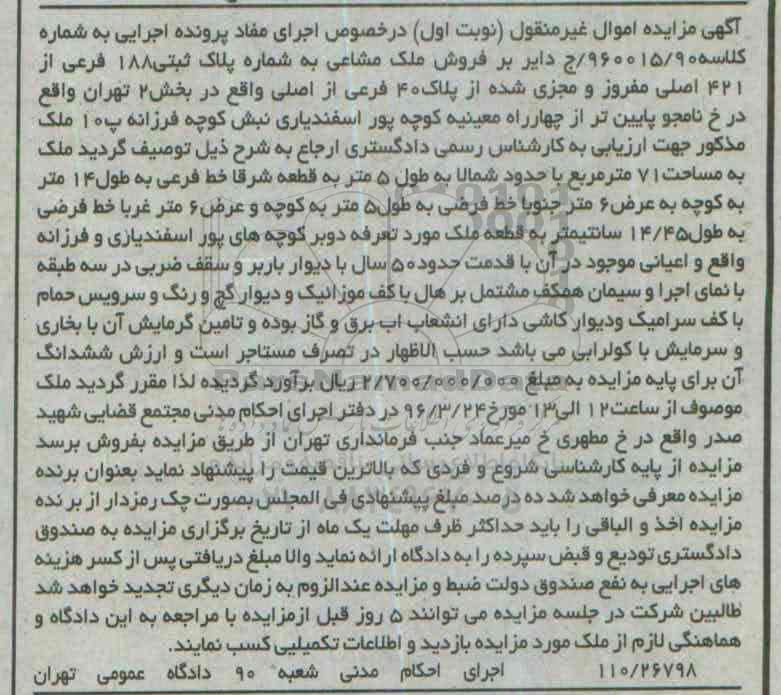 آگهی مزایده اموال غیرمنقول (نوبت اول) درخصوص اجرای مفاد پرونده اجرایی به شماره
کلاسه۹۶۰۰۱۵/۹۰/ج دایر بر فروش ملک مشاعی به شماره پلاک ثبتی۱۸۸ فرعی از
۴۲۱ اصلی مفروز و مجزی شده از پلاک۴۰ فرعی از اصلی واقع در بخش۲ تهران واقع
در خ نامجو پایین تر از چهارراه معینیه کوچه پور اسفندیاری نبش کوچه فرزانه پ۱۰ ملک
مذکور جهت ارزیابی به کارشناس رسمی دادگستری ارجاع به شرح ذیل توصیف گردید ملک
به مساحت۷۱ مترمربع با حدود شمالا به طول ۵ متر به قطعه شرقا خط فرعی به طول۱۴ متر
به کوچه به عرض۶ متر جنوبا خط فرضی به طول۵ متر به کوچه و عرض۶ متر غربا خط فرضی
به طول۱۴/۴۵ سانتیمتر به قطعه ملک مورد تعرفه دوبر کوچه های پور اسفندیازی و فرزانه
واقع و اعیانی موجود در آن با قدمت حدود۵۰ سال با دیوار باربر و سقف ضربی در سه طبقه
با نمای اجرا و سیمان همکف مشتمل بر هال با کف موزائیک و دیوار گچ و رنگ و سرویس حمام
با کف سرامیک ودیوار کاشی دارای انشعاب اب برق و گاز بوده و تامین گرمایش آن با بخاری
و سرمایش با کولرابی می باشد حسب الاظهار در تصرف مستاجر است و ارزش ششدانگ
آن برای پایه مزایده به مبلغ ۲/۷۰۰/۰۰۰/۰۰۰ ریال برآورد گردیده لذا مقرر گردید ملک
موصوف از ساعت۱۲ الی۱۳ مورخ۹۶/۳/۲۴ در دفتر اجرای احکام مدنی مجتمع قضایی شهید
صدر واقع در خ مطهری خ میرعماد جنب فرمانداری تهران از طریق مزایده بفروش برسد
مزایده از پایه کارشناسی شروع و فردی که بالاترین قیمت را پیشنهاد نماید بعنوان برنده
مزایده معرفی خواهد شد ده درصد مبلغ پیشنهادی فی المجلس بصورت چک رمزدار از برنده
مزایده اخذ و الباقی را باید حداکثر ظرف مهلت یک ماه از تاریخ برگزاری مزایده به صندوق
دادگستری تودیع و قبض سپرده را به دادگاه ارائه نماید والا مبلغ دریافتی پس از کسر هزینه
های اجرایی به نفع صندوق دولت ضبط و مزایده عندالزوم به زمان دیگری تجدید خواهد شد
طالبین شرکت در جلسه مزایده می توانند ۵ روز قبل ازمزایده با مراجعه به این دادگاه و
هماهنگی لازم از ملک مورد مزایده بازدید و اطلاعات تکمیلیی کسب نمایند.
۱۱۰/۲۶۷۹۸ اجرای احکام مدنی شعبه ۹۰ دادگاه عمومی تهران